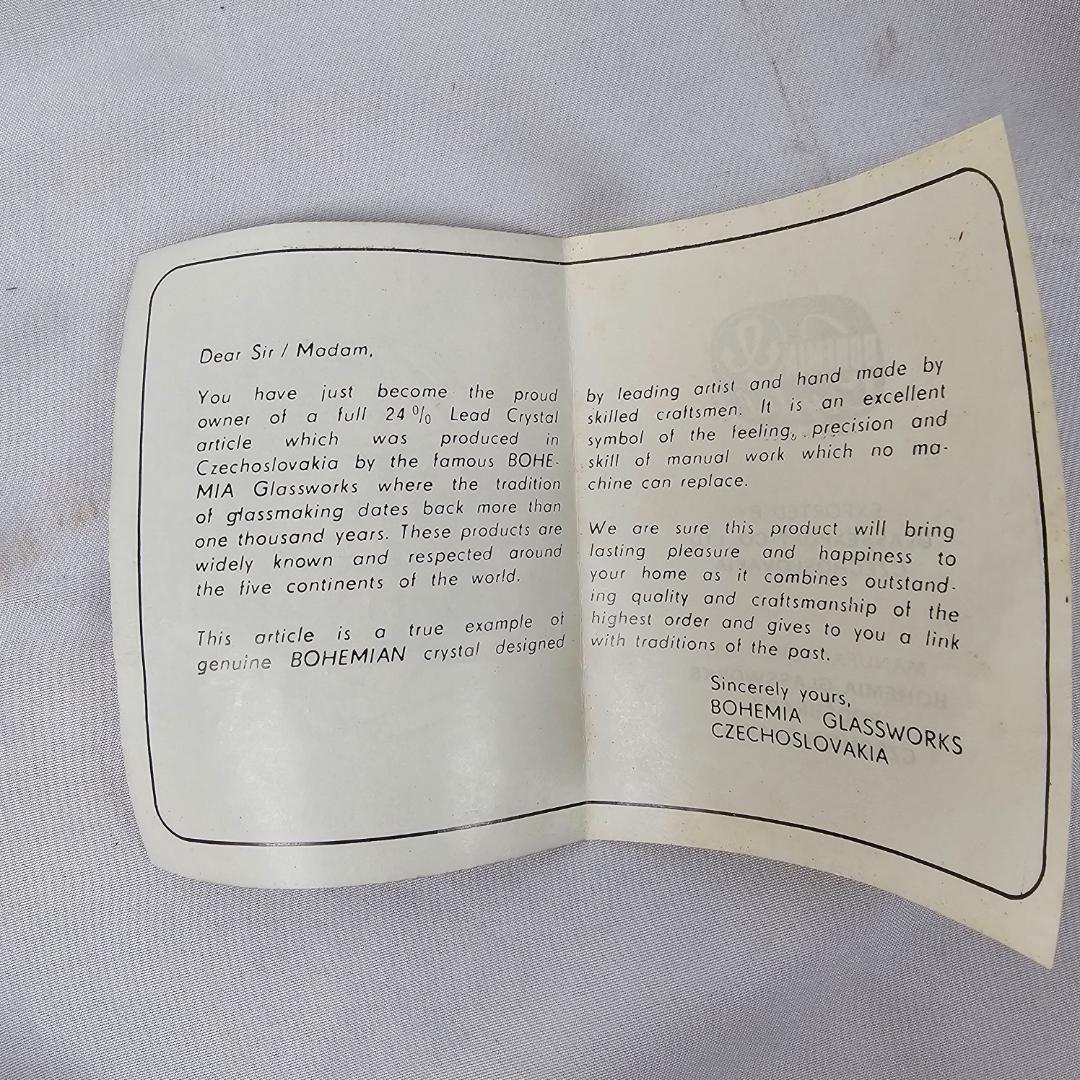 Dear Sir / Madam,
You have just become the proud
owner of a full 24% Lead Crystal
article which was produced in
Czechoslovakia by the famous BOHE-
MIA Glassworks where the tradition
of glassmaking dates back more than
one thousand years. These products are
widely known and respected around
the five continents of the world.
This article is a true example of
genuine BOHEMIAN crystal designed
by leading artist and hand made by
skilled craftsmen. It is an excellent
symbol of the feeling, precision and
skill of manual work which no ma-
chine can replace.
We are sure this product will bring
lasting pleasure and happiness to
your home as it combines outstand-
ing quality and craftsmanship of the
highest order and gives to you a link
with traditions of the past.
Sincerely yours,
BOHEMIA GLASSWORKS
CZECHOSLOVAKIA